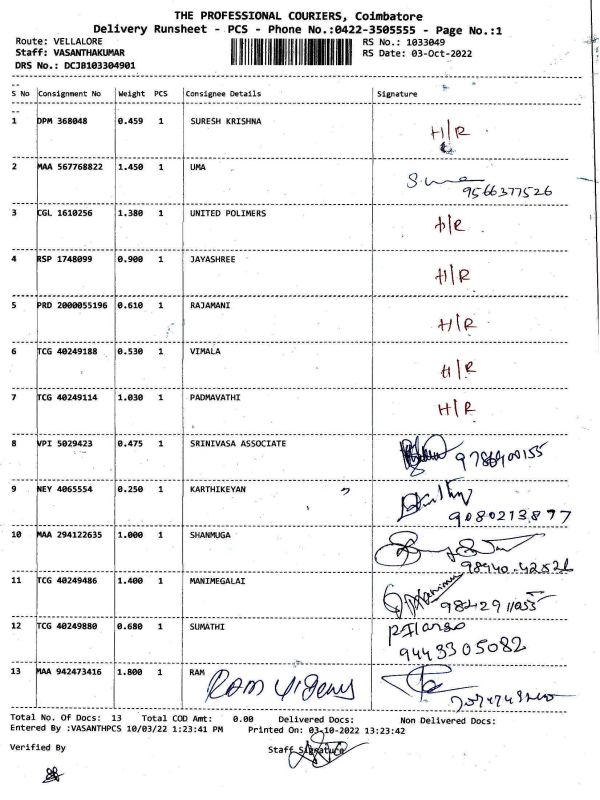 THE PROFESSIONAL COURIERS, Coimbatore
Delivery Runsheet - PCS - Phone No.:0422-3505555 - Page No.:1
Route: VELLALORE RS No.: 1033049
Staff: VASANTHAKUMAR RS Date: 03-Oct-2022
DRS No.: DCJB103304901
S No Consignment No Weight PCS Consignee Details Signature
1 DPM 368048 0.459 1 SURESH KRISHNA H/R
2 MAA 567768822 1.450 1 UMA
9566377526
3 CGL 1610256 1.380 1 UNITED POLIMERS H/R
4 RSP 1748099 0.900 1 JAYASHREE H/R
5 PRD 2000055196 0.610 1 RAJAMANI H/R
6 TCG 40249188 0.530 1 VIMALA H/R
7 TCG 40249114 1.030 1 PADMAVATHI H/R
8 VPI 5029423 0.475 1 SRINIVASA ASSOCIATE
9 NEY 4065554 0.250 1 KARTHIKEYAN
9080213877
10 MAA 294122635 1.000 1 SHANMUGA
11 TCG 40249486 1.400 1 MANIMEGALAI
12 TCG 40249880 0.680 1 SUMATHI
9443305082
13 MAA 942473416 1.800 1 RAM
Ram
Total No. Of Docs: 13 Total COD Amt: 0.00 Delivered Docs: Non Delivered Docs:
Entered By :VASANTHPCS 10/03/22 1:23:41 PM Printed On: 03-10-2022 13:23:42
Verified By Staff Signature